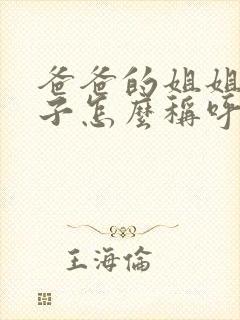 爸爸的姐姐
子怎麼稱呼
王海倫